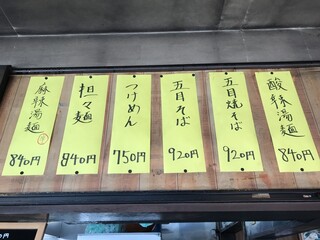 酸辣湯麺
840円
五目焼そば
920円
五目そば
920円
つけめん
750円
担々麺
840円
麻辣湯麺
840円